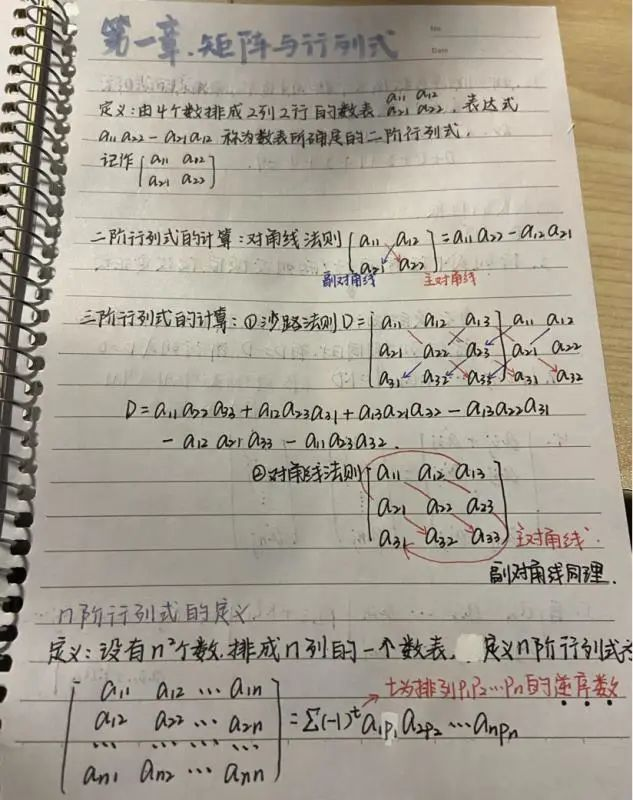 第一章.矩阵与行列式
No
Date
定义:由4个数排成2列2行的数表 a11 a12 a21 a22 , 表达式
a11 a22 - a21 a12 称为数表所确定的二阶行列式.
记作 [a11 a12
a21 a22]
二阶行列式的计算:对角线法则 [a11 a12 = a11 a22 - a12 a21
a21 a22]
副对角线 主对角线
三阶行列式的计算:①沙路法则 D = [a11 a12 a13] a11 a12
a21 a22 a23 a21 a22
a31 a32 a33 a31 a32
D = a11 a22 a33 + a12 a23 a31 + a13 a21 a32 - a13 a22 a31
- a12 a21 a33 - a11 a23 a32 .
②对角线法则 [a11 a12 a13
a21 a22 a23
a31 a32 a33] 主对角线.
副对角线同理.
n阶行列式的定义.
定义:设有n²个数,排成n列的一个数表, 定义n阶行列式
t为排列p1p2…pn的逆序数
a11 a12 … a1n
a12 a22 … a2n = Σ(-1)^t a1p1 a2p2 … anpn
… … … …
an1 an2 … ann